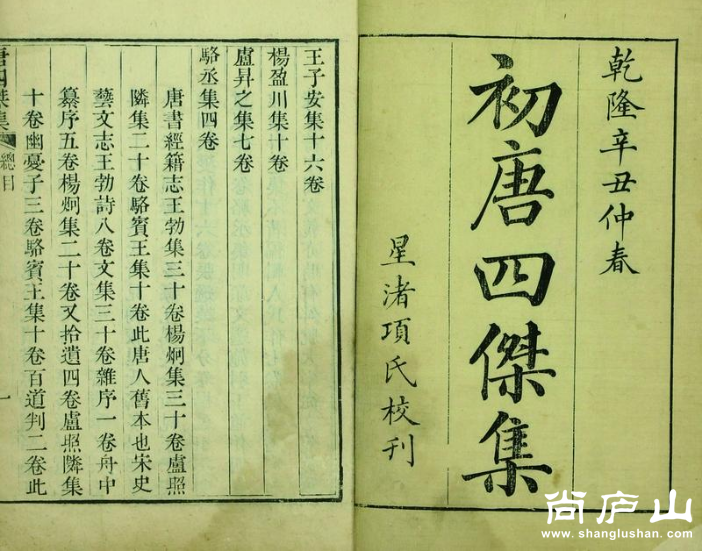 乾隆辛丑仲春
初唐四傑集
星渚項氏校刊
王子安集十六卷
楊盈川集十卷
盧昇之集七卷
駱丞集四卷
唐書經籍志王勃集三十卷楊炯集三十卷盧照
隣集二十卷駱賓王集十卷此唐人舊本也宋史
藝文志王勃詩八卷文集三十卷雜序一卷舟中
纂序五卷楊炯集二十卷又拾遺四卷盧照隣集
十卷幽憂子三卷駱賓王集十卷百道判二卷此
唐四傑集 總目 一
尚庐山
www.shanglushan.com